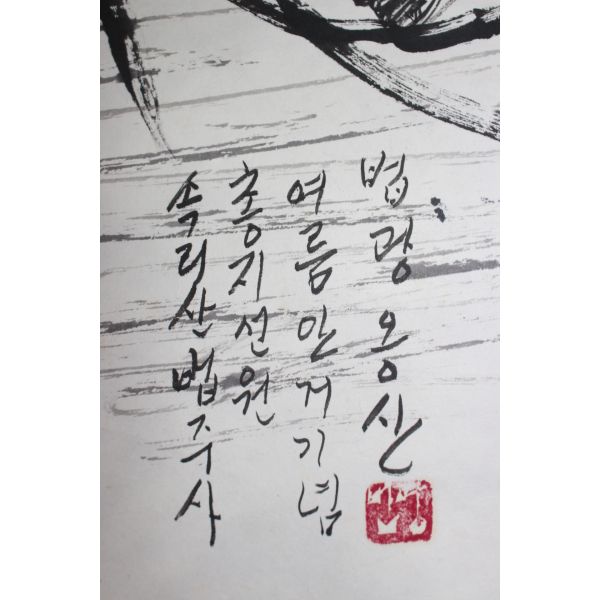 속리산법주사
총지선원
여름안거기념
법광옹산